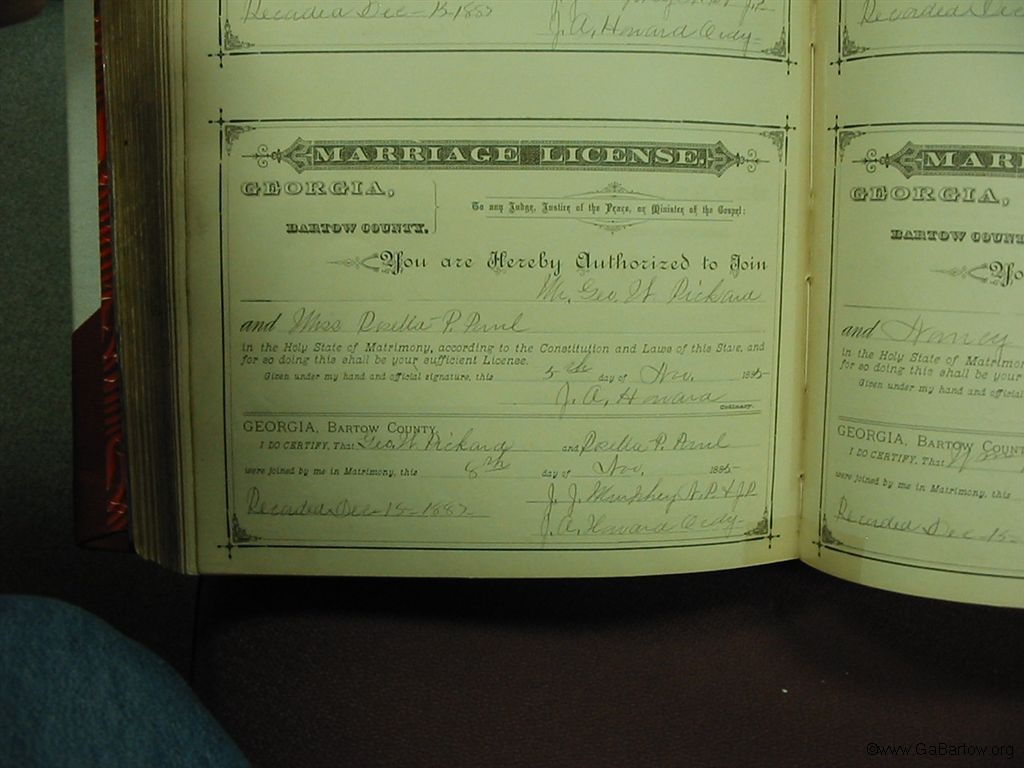 Recorded Dec 15-1887
J. A. Howard Ordy-
Recorded Dec
MARRIAGE LICENSE.
GEORGIA,
BARTOW COUNTY.
To any Judge, Justice of the Peace, or Minister of the Gospel:
You are Hereby Authorized to Join
Mr. Geo. W. Pickard
and Miss Rosella P.
in the Holy State of Matrimony, according to the Constitution and Laws of this State, and
for so doing this shall be your sufficient License.
Given under my hand and official signature, this 5th day of Nov. 1885
J. A. Howard
Ordinary.
GEORGIA, BARTOW COUNTY,
I DO CERTIFY, That Geo. W. Pickard and Rosella P.
were joined by me in Matrimony, this 8th day of Nov. 1885
J. J. N.P. & J.P.
Recorded Dec-15-1887
J. A. Howard Ordy-
GEORGIA,
BARTOW COUNT
You
and Nancy
in the Holy State of Matrimon
for so doing this shall be your
Given under my hand and official
GEORGIA, BARTOW COUNT
I DO CERTIFY, That
were joined by me in Matrimony, this
Recorded Dec-15-
©www.GaBartow.org